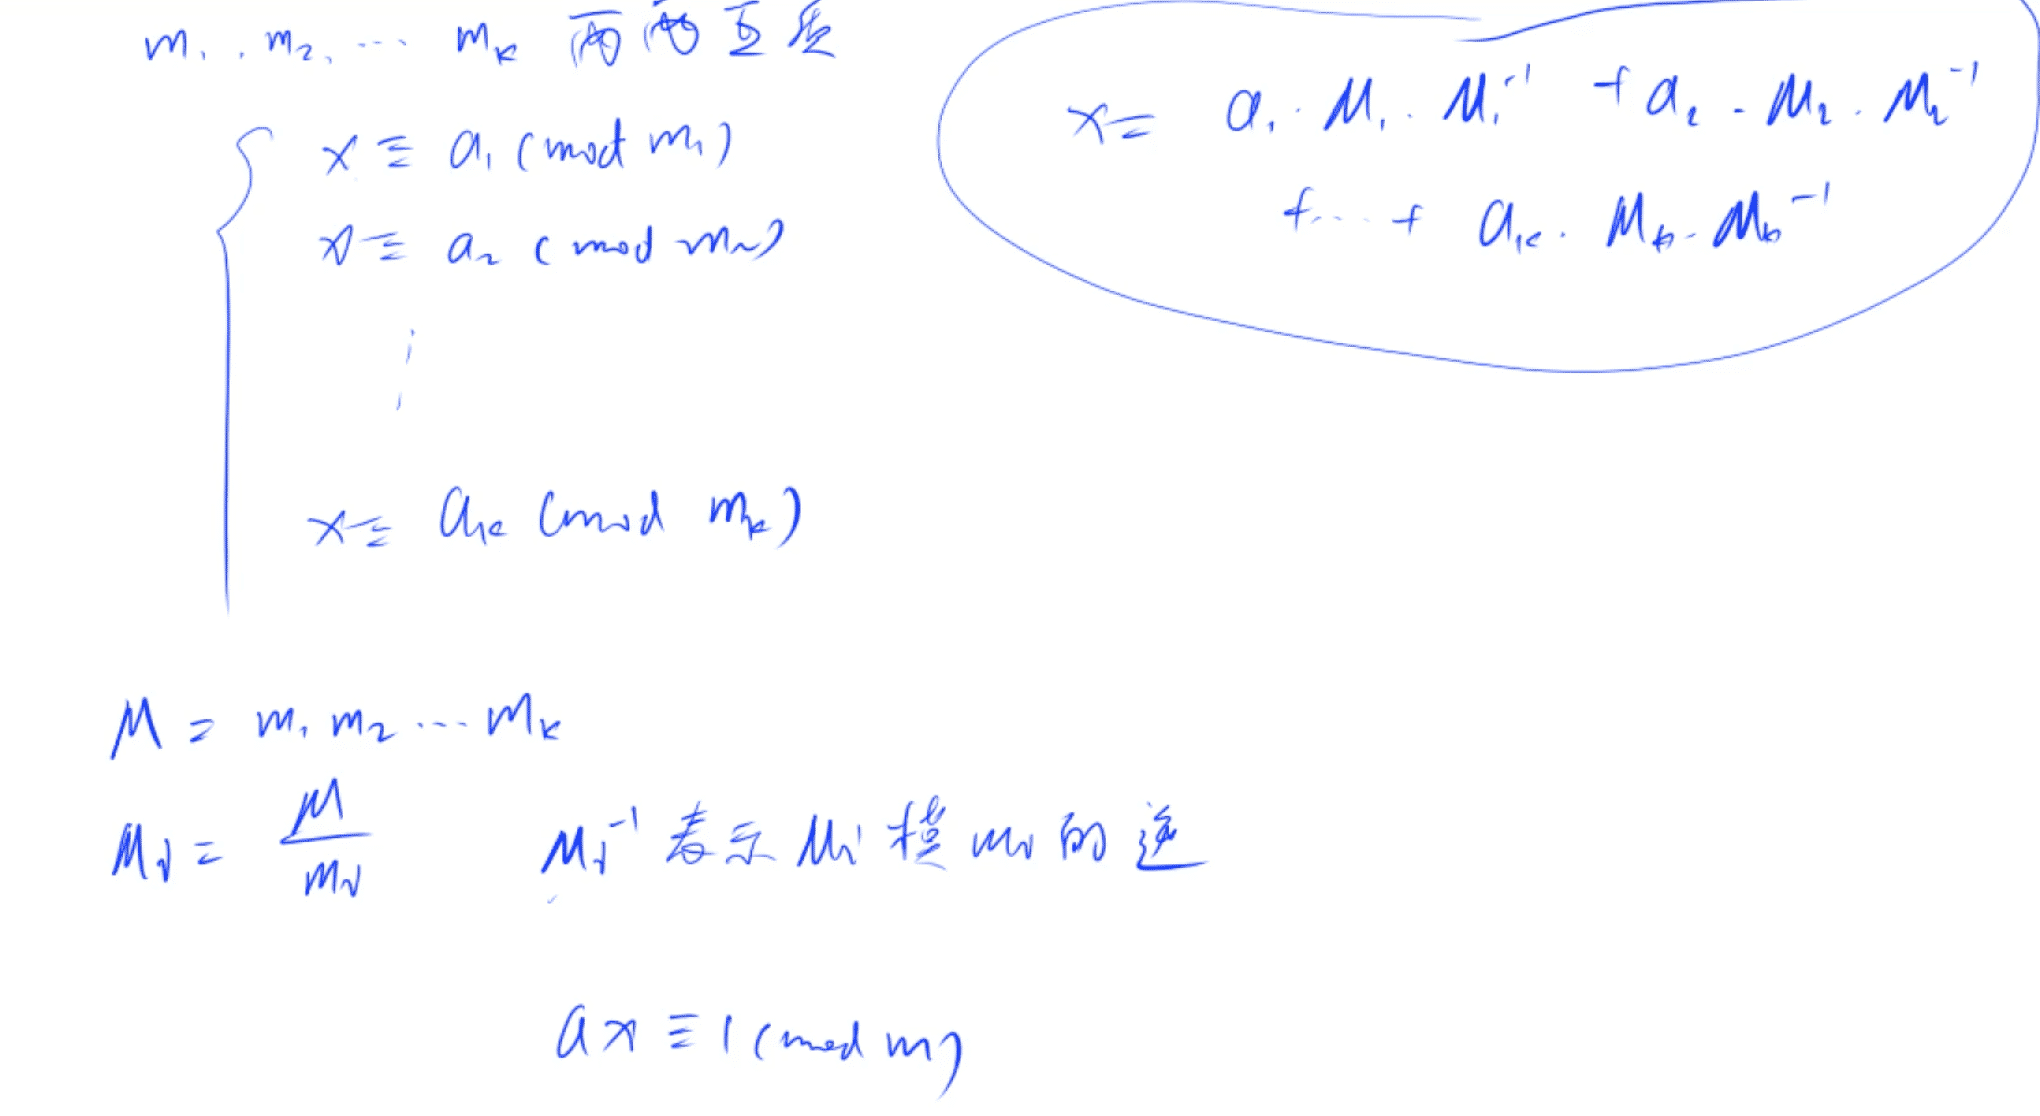 m₁, m₂, ⋯ mₖ 两两互质
x ≡ a₁ (mod m₁)
x ≡ a₂ (mod m₂)
⋮
x ≡ aₖ (mod mₖ)
x = a₁·M₁·M₁⁻¹ + a₂·M₂·M₂⁻¹
+ ⋯ + aₖ·Mₖ·Mₖ⁻¹
M = m₁m₂⋯mₖ
Mᵢ = M/mᵢ Mᵢ⁻¹ 表示 Mᵢ 模 mᵢ 的逆
ax ≡ 1 (mod m)